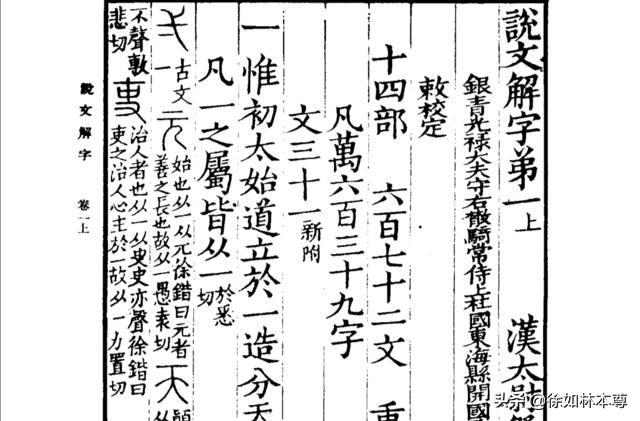 說文解字弟一上 漢太尉
銀青光祿大夫守右散騎常侍上柱國東海縣開國
敕校定
十四部 六百七十二文 重
凡萬六百三十九字
文三十一新附
一惟初太始道立於一造分天
凡一之屬皆从一於悉切
弌古文一 元始也从一从兀徐鍇曰元者善之長也故从一愚袁切 天顛
不聲敷悲切 吏治人者也从一从史史亦聲徐鍇曰吏之治人心主於一故从一力置切
說文解字 卷一上
头条 @徐如林本尊